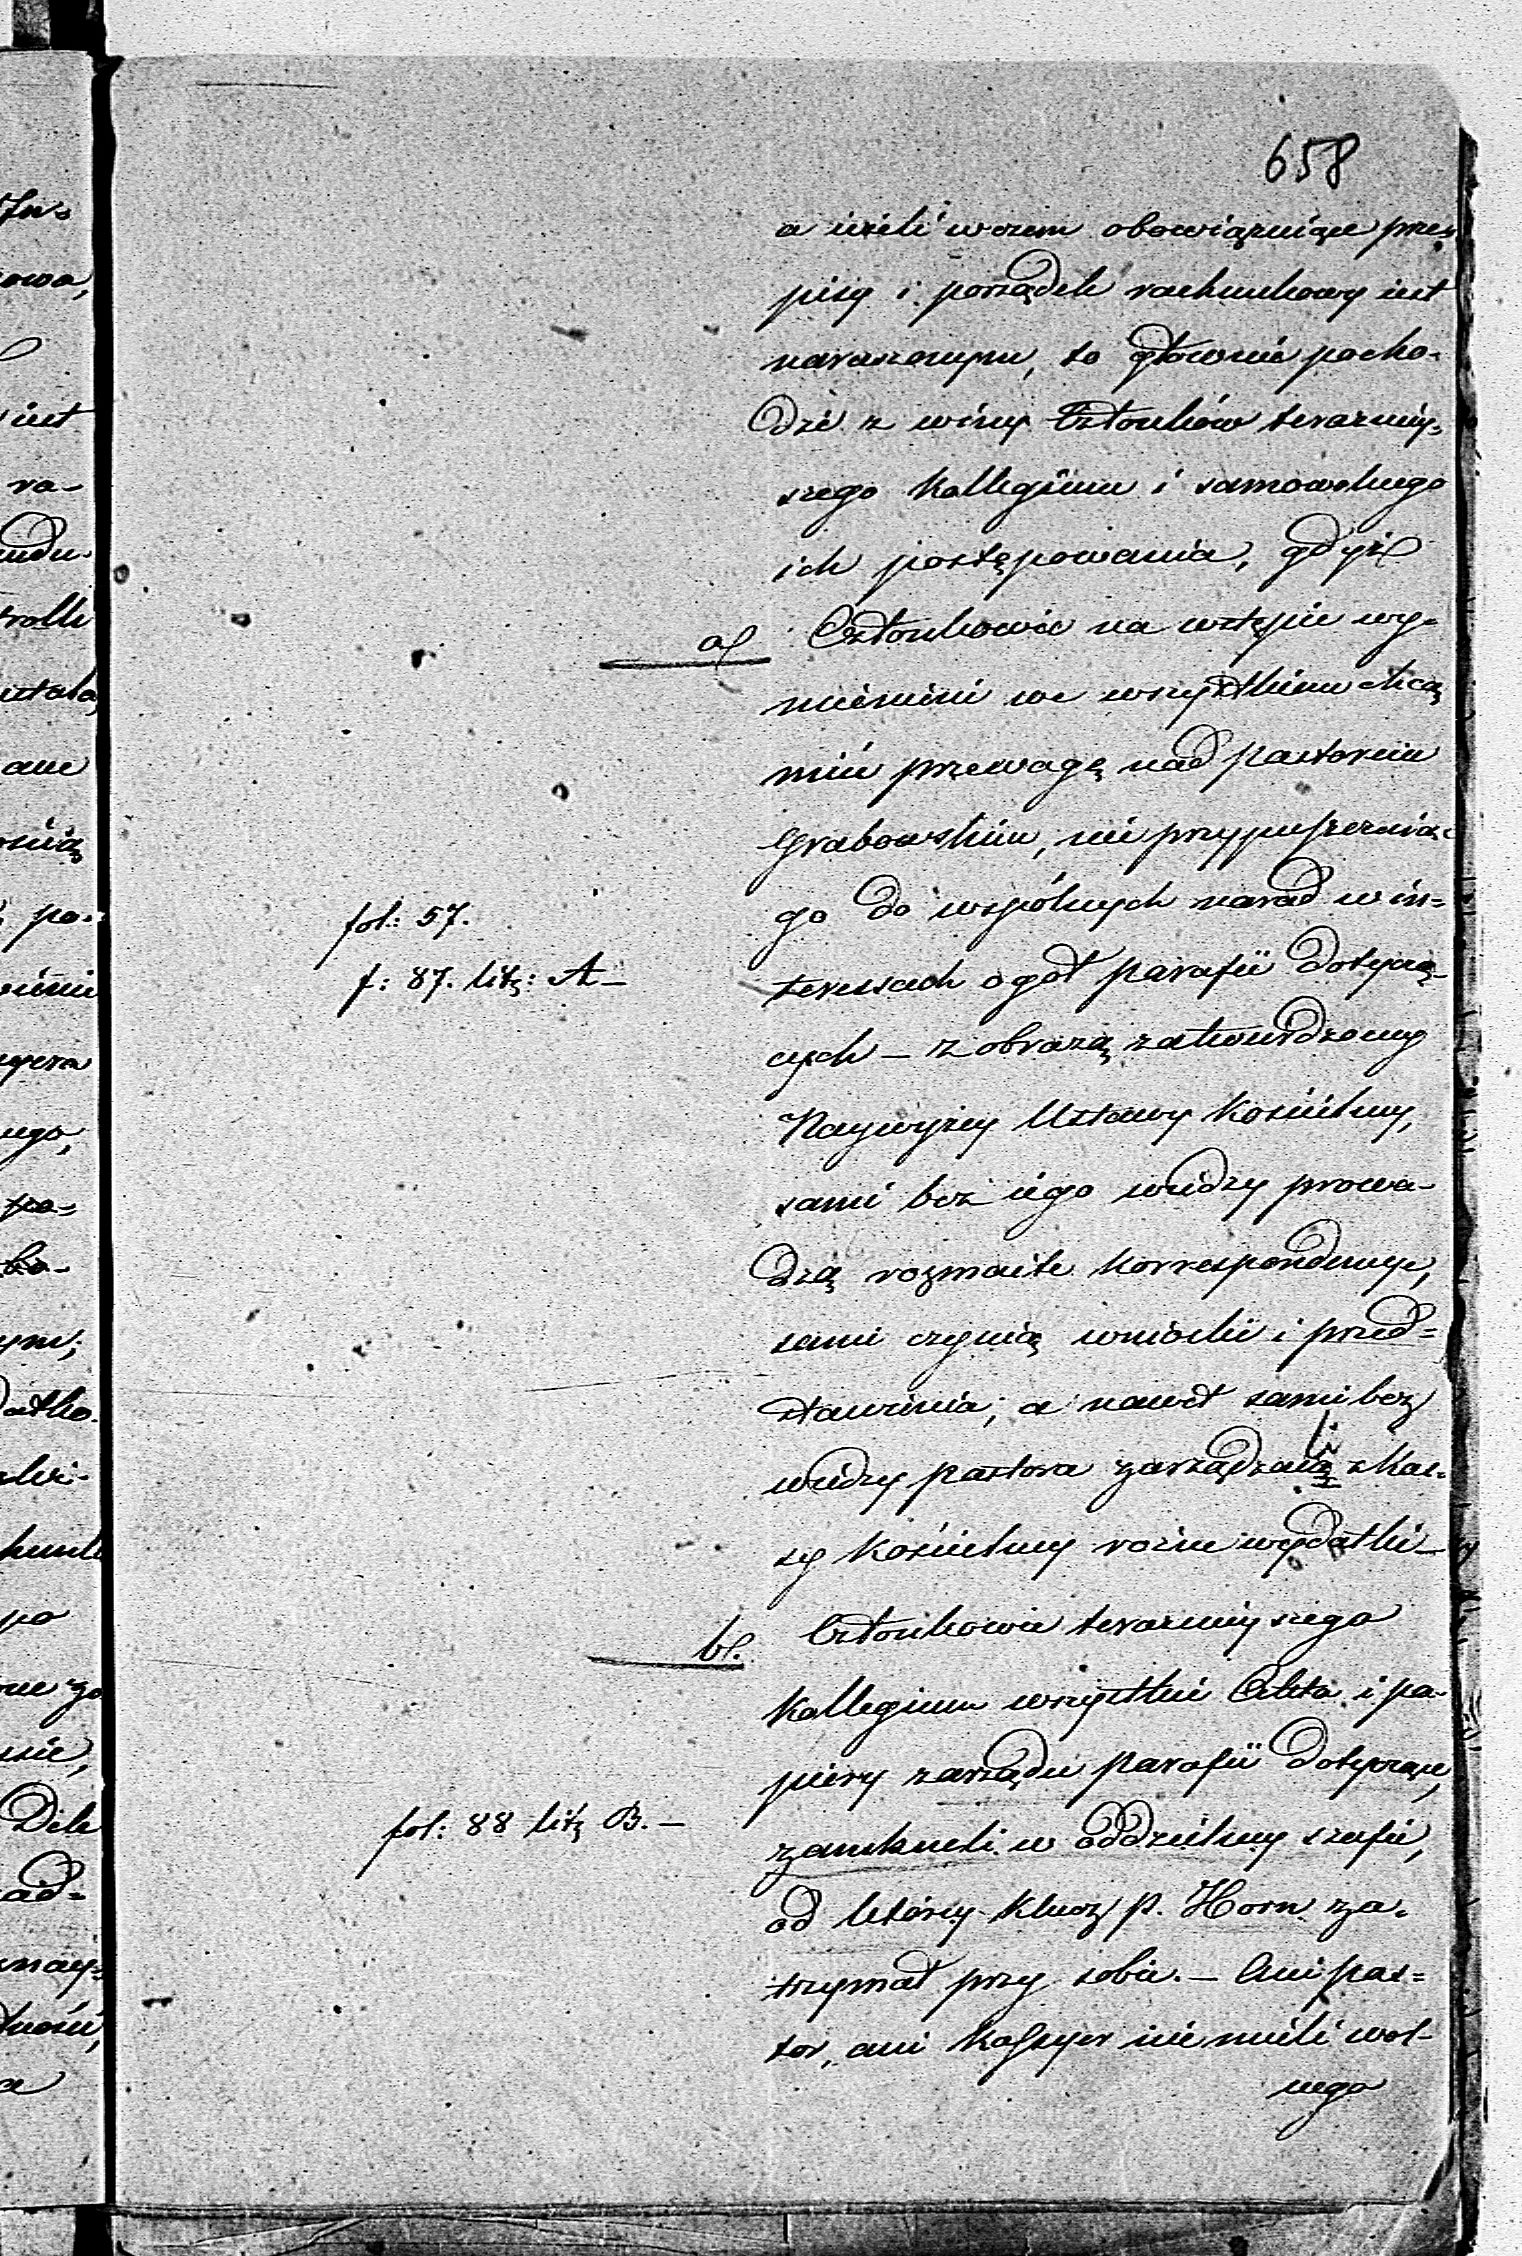 658
a ieżeli wczem obowiązuiące prze-
pisy i porządek rachunkowy iest
naruszonym, to głównie pocho-
dzi z winy Członków teraźniey-
szego Kollegium i samowolnego
ich postępowania, gdyż
a/ Członkowie na wstępie wy-
mienieni we wszystkiem chcą
mieć przewagę nad pastorem
Grabowskim, nie przypuszczaiąc
go do wspólnych narad w in-
fol: 57.
teressach ogół parafii dotyczą-
f: 87. litt: A –
cych – z obrazą zatwierdzoney
Naywyżey Ustawy Kościelney,
sami bez iego wiedzy prowa-
dzą rozmaite korrespondencye,
sami czynią wnioski i przed-
stawienia; a nawet sami bez
wiedzy pastora zarządzali z Kas-
sy Kościelney różne wydatki –
b/. Członkowie teraźnieyszego
Kollegium wszystkie Akta i pa-
piery zarządu parafii dotyczące,
zamknęli w oddzielney szafie,
fol: 88 litt B. –
od którey klucz p. Horn za-
trzymał przy sobie. – Ani pas-
tor, ani Kassyer nie mieli wol-
nego